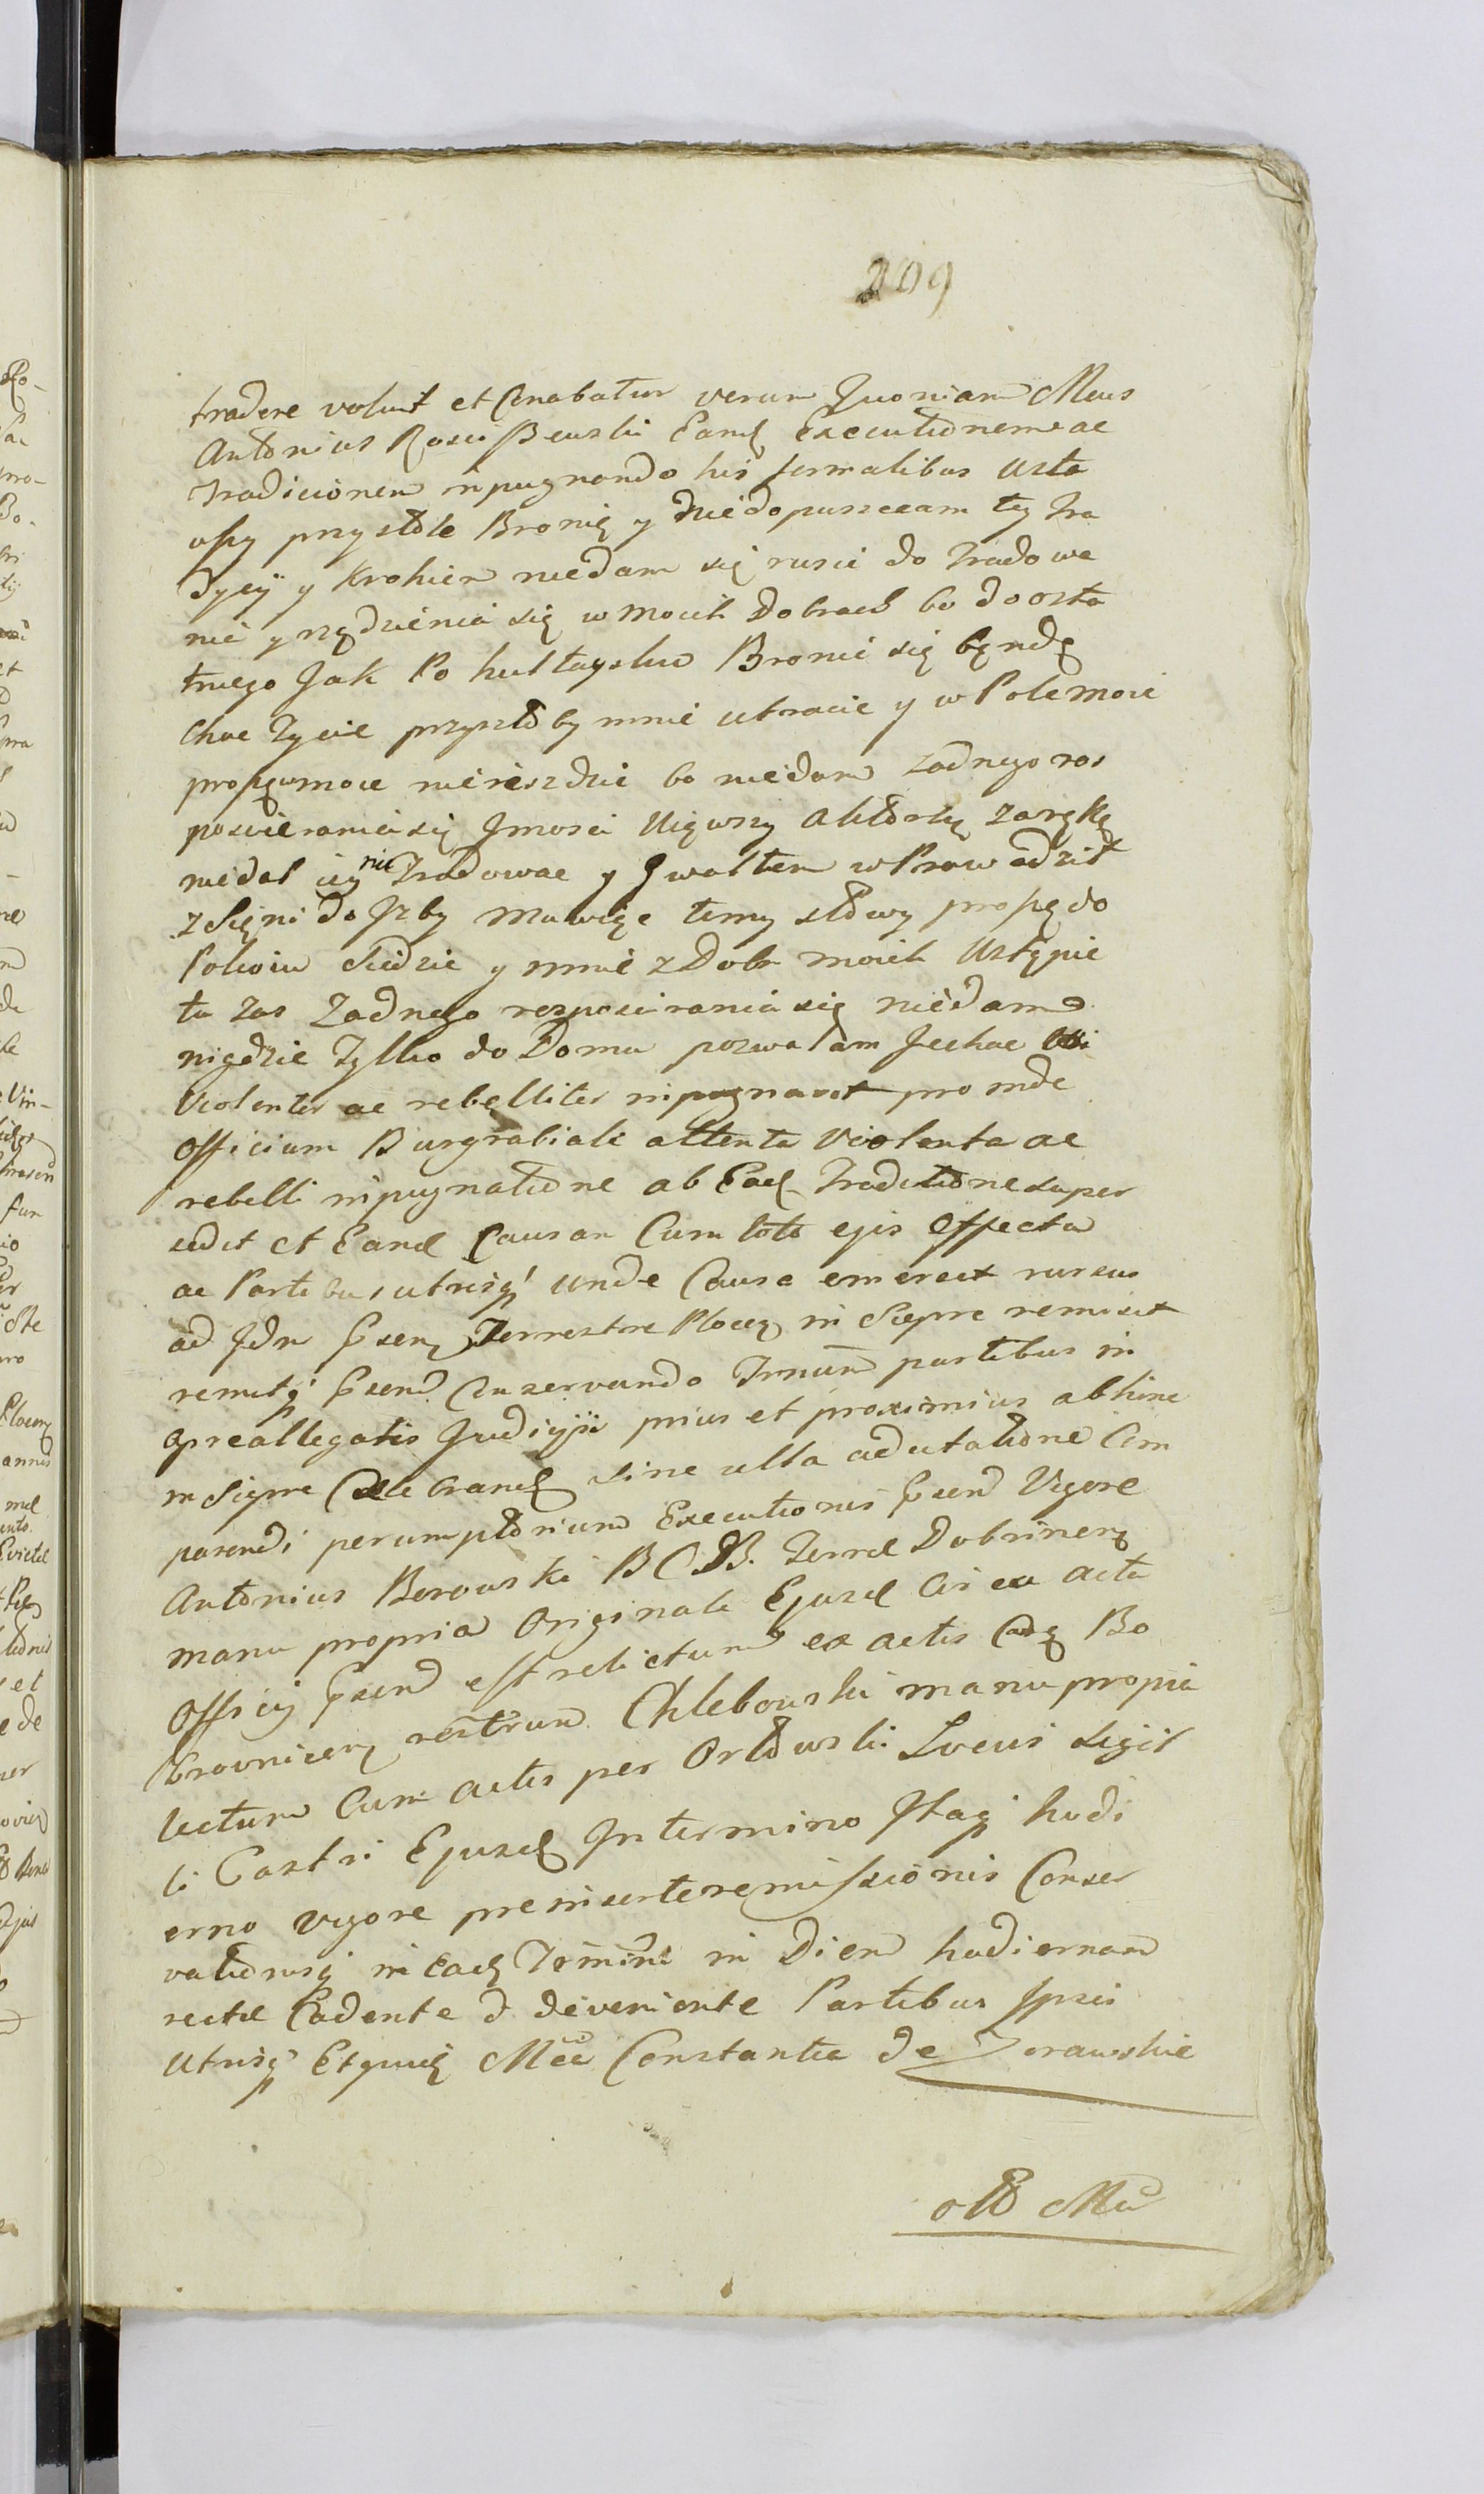 209
tradere voluit et Conabatur verum Quoniam Mcus
Antonius Rosciszewski Eand Executionem ac
Tradicionem inpugnando his formalibus Usta
wszy przystole Bronię y Niedopuszczam tey Tra
dycyi y Krokiem niedam się rusić do Tradowa
nie y rządzenia się w moich Dobrach bo do osta
tniego Jak Po hultaysku Bronić się będę
Choc Zycie przyszło by mnie utracic y w Pole moie
proszę wmoie nieiezdzić bo niedam zadnego ros
poscierania się Jmosci Uiąwszy Aktorkę za rękę
niedał iey nie Tradowac y Gwałtem w Prowadził
z Sięni do Jzby Mowiąc temy słowy proszę do
Pokoiu Siedzic y mnie z Dobr moich Ustąpic
ta zas Zadnego rosposcirania się niedam
nigdzie Tylko do Domu pozwalam Jechac
Violenter ac rebelliter inpugnavit pro inde
Officium Burgrabiale attenta Violenta ac
rebelli inpugnatione ab Ead Traditione super
sedit et Eand Causam Cum toto ejus Effectu
ac Partibus utrisq unde Causa emersit rursus
ad Jdm Psens Terrestre Plocen in Sierpc remisit
remittq Psend Conservando Trnum partibus in
preallegatis Judicijs prius et proximius abhinc
in Sierpc Celebrand sine ulla adcitatione Com
parendi peremptorium Executionis Psend Vigore
Antonius Borowski B C D B. Terre Dobrinen
manu propria Originale Ejusd Circa acta
Officij Psend est relictum ex actis Cas Bo
brovnicen restrum Chlebowski manu propria
lectum Cum actis per Orłowski Locus Sigil
li Castri Ejusd Jntermino Jtaq hodi
erno vigore preinserte remissionis Conser
vationisq in Ead Termini in Diem hodiernam
recte Cadente & deveniente Partibus Jpsis
Utrisq Etquid Mca Constantia de Zorawskie
olto Mci